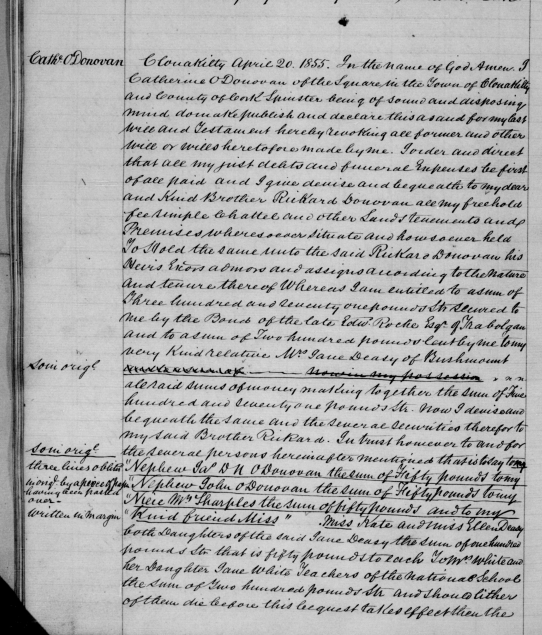 Cathe O'Donovan
Clonakilty April 20. 1855. In the name of God Amen. I
Catherine O'Donovan of the Square in the Town of Clonakilty
and County of Cork Spinster being of sound and disposing
mind do make publish and declare this as and for my last
will and Testament hereby revoking all former and other
will or wills heretofore made by me. I order and direct
that all my just debts and funeral Expenses be first
of all paid and I give devise and bequeath to my dear
and Kind Brother Rickard Donovan all my freehold
fee simple Chattel and other Lands tenements and
Premises wheresoever situate and howsoever held
To Hold the same unto the said Rickard Donovan his
Heirs Exors admors and assigns according to the nature
and tenure thereof Whereas I am entitled to a sum of
Three hundred and seventy one pounds Str secured to
me by the Bond of the late Edwd. Roche Esqr. of Trabolgan
and to a sum of Two hundred pounds lent by me to my
very Kind relative Mrs Jane Deasy of Bushmount
So in origl.
now in my possession
said sums of money making together the sum of Five
hundred and seventy one pounds Str. Now I devise and
bequeath the same and the several securities therefor to
my said Brother Rickard. In trust however to and for
the several persons hereinafter mentioned that is to say to my
So in origl.
three lines obliterated
in origl. by a piece of paper
having been pasted
over.
written in margin
Nephew Jas. D N O'Donovan the sum of Fifty pounds to my
Nephew John O'Donovan the sum of Fifty pounds to my
Niece Mrs Sharples the sum of fifty pounds and to my
"Kind friend Miss" Miss Kate and Miss Ellen Deasy
both Daughters of the said Jane Deasy the sum of one hundred
pounds Str that is fifty pounds to each To Mrs. White and
her Daughter Jane White Teachers of the National School
the sum of Two hundred pounds Str and should either
of them die before this bequest takes effect then the